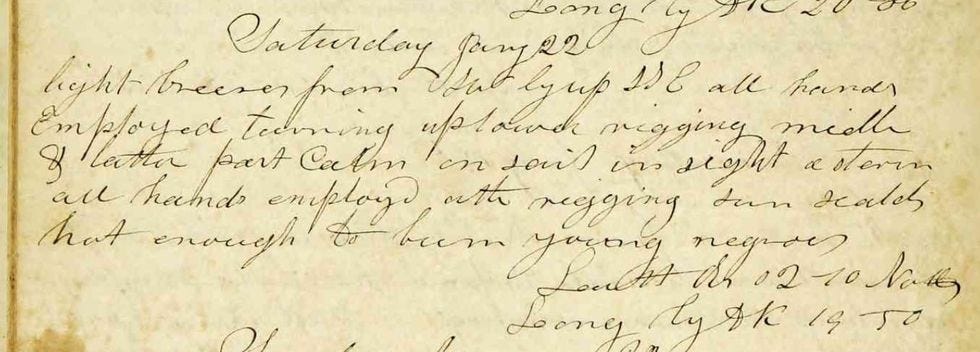 Long by DR 20-00
Saturday Jany 22
light breeses from SW by up SSE all hands
Employed turning up lower rigging midle
& latter part Calm on sail in sight a stern
all hands employd att rigging sun scalds
hot enough to burn young negroes
Latt Ob 02-10 North
Long by DR 19-50